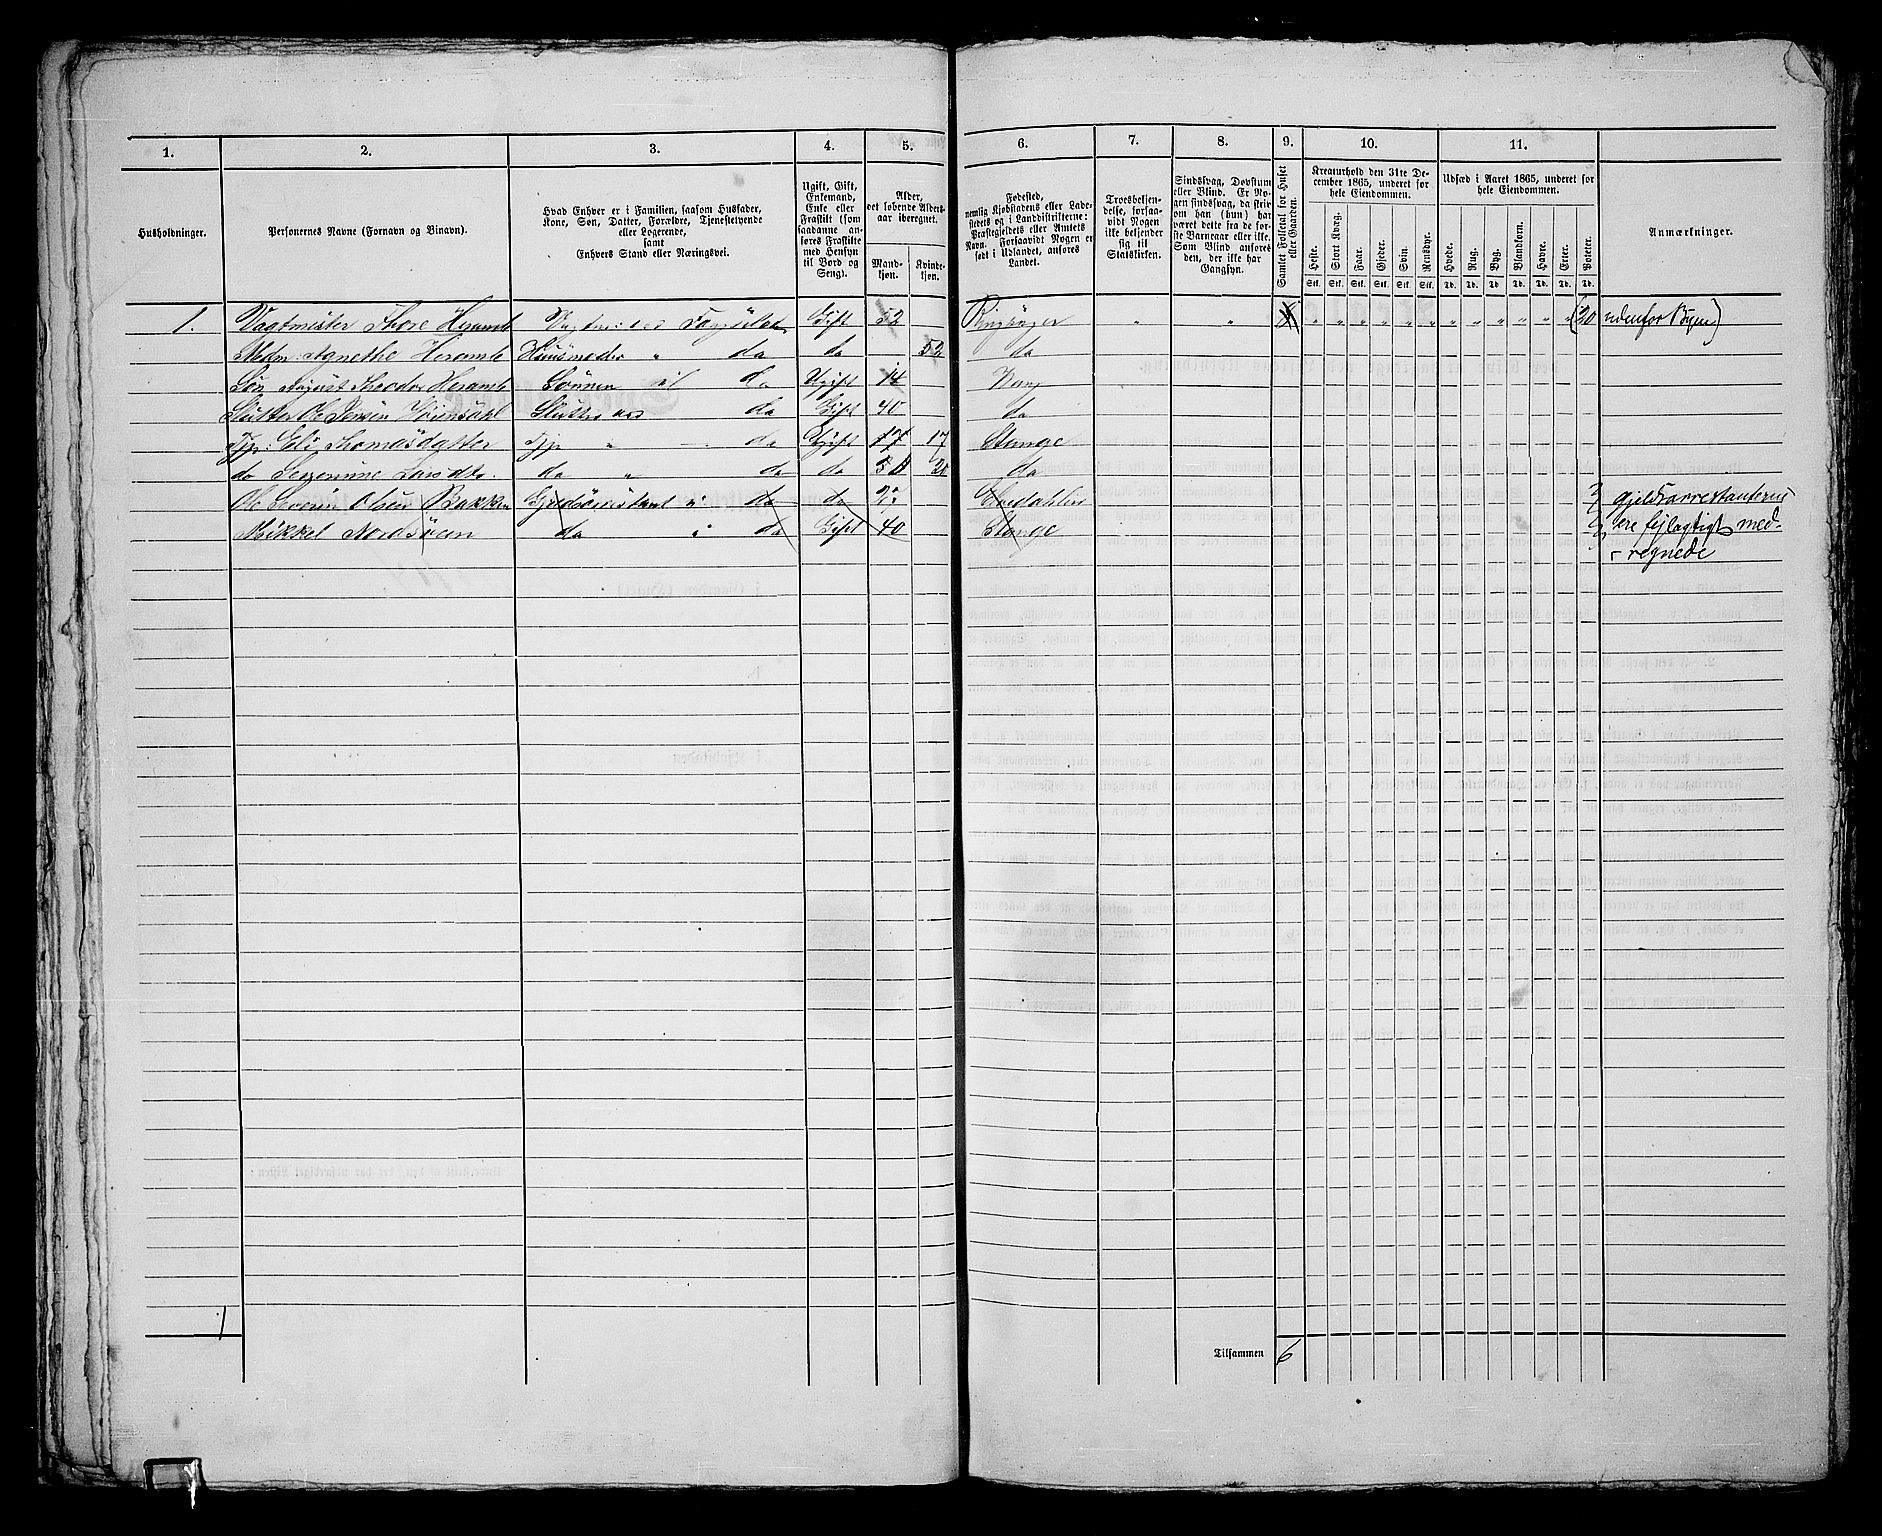 1. 2. 3. 4. 5. 6. 7. 8. 9. 10. 11.
Husholdninger.
Personernes Navne (Fornavn og Binavn).
Hvad Enhver er i Familien, saasom Husfader,
Kone, Søn, Datter, Forældre, Tjenestetyende
eller Logerende,
samt
Enhvers Stand eller Næringsvei.
Ugift, Gift,
Enkemand,
Enke eller
Fraskilt (som
saadanne an-
føres Fraskilte
med Hensyn
til Bord og
Seng).
Alder,
det løbende Alders-
aar iberegnet.
Mand-
kjøn.
Kvinde-
kjøn.
Fødested,
nemlig Kjøbstadens eller Lade-
stedets og i Landdistrikterne:
Præstegjeldets eller Amtets
Navn. Forsaavidt Nogen er
født i Udlandet, anføres
Landet.
Troesbekjen-
delse, forsaa-
vidt Nogen
ikke bekjender
sig til
Statskirken.
Sindssvag, Døvstum
eller Blind. Er No-
gen sindssvag, da skriv
om han (hun) har
været dette fra de før-
ste Barneaar eller ikke.
Som Blind anføres
den, der ikke har
Gangsyn.
Samlet Folketal for Huset
eller Gaarden.
Kreaturhold den 31te De-
cember 1865, underet for
hele Eiendommen.
Heste. Stort Kvæg. Faar. Gjeder. Svin. Rensdyr.
Stk. Stk. Stk. Stk. Stk. Stk.
Udsæd i Aaret 1865, underet for
hele Eiendommen.
Hvede. Rug. Byg. Blandkorn. Havre. Erter. Poteter.
Td. Td. Td. Td. Td. Td. Td.
Anmærkninger.
1. Vagtmister Thore Heramb Gift 52 " " " " " " " " " " " " " " (20 udenfor Byen)
Mdm: Agnethe Heramb Huusmoder " do do 52 do
Søn August Theodor Heramb Sønnen do Ugift 14 Vang
Slutter Ole Jensen do Gift 40 do
Tjp: Eli Thomasdatter Tjp " do Ugift 17 17 Stange
do Larsdtr. do " do do 20 do
Ole Severin Olsen Bakken i do do Gjeldsarrestanterne
Mikkel do i do Gift 40 Stange ere fejlagtigt med-
regnede
1
Tilsammen 6